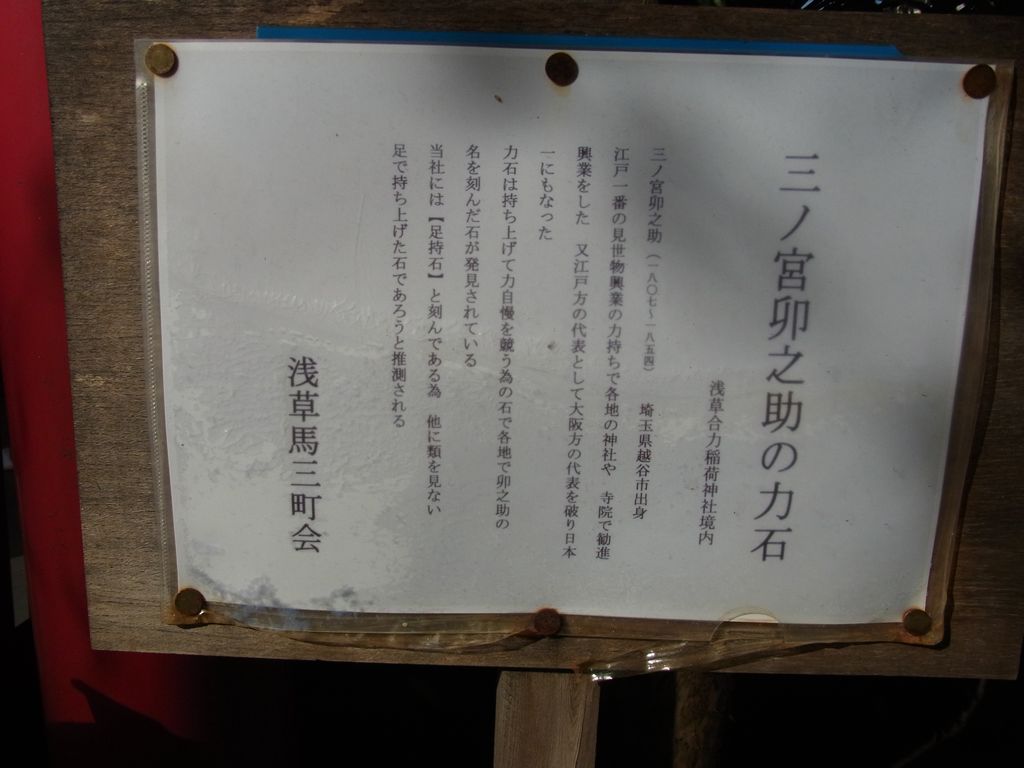 三ノ宮卯之助の力石
浅草合力稲荷神社境内
三ノ宮卯之助（一八〇七～一八五四）　埼玉県越谷市出身
江戸一番の見世物興業の力持ちで各地の神社や　寺院で勧進
興業をした　又江戸方の代表として大阪方の代表を破り日本
一にもなった
力石は持ち上げて力自慢を競う為の石で各地で卯之助の
名を刻んだ石が発見されている
当社には【足持石】と刻んである為　他に類を見ない
足で持ち上げた石であろうと推測される
浅草馬三町会